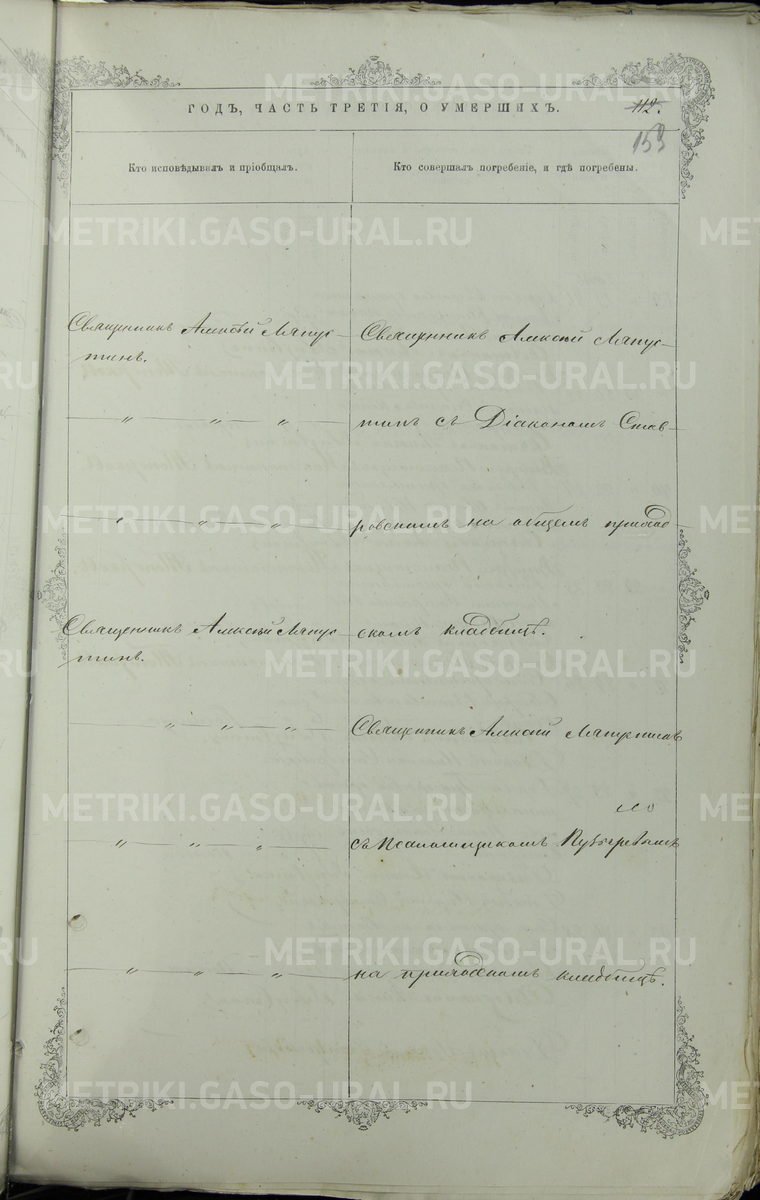 ГОДЪ, ЧАСТЬ ТРЕТІЯ, О УМЕРШИХЪ.
112.
153
Кто исповѣдывалъ и пріобщалъ.
Кто совершалъ погребеніе, и гдѣ погребены.
Священникъ Алексѣй Ляпус-
тинъ.
〃 〃 〃
〃 〃 〃
Священникъ Алексѣй Ляпус
тинъ.
〃 〃 〃
〃 〃 〃
〃 〃 〃
Священникъ Алексѣй Ляпус-
тинъ съ Діакономъ Став-
ровскимъ на общемъ приход-
скомъ кладбищѣ.
Священникъ Алексѣй Ляпустинъ
съ Псаломщикомъ
на приходскомъ кладбищѣ.
METRIKI.GASO-URAL.RU